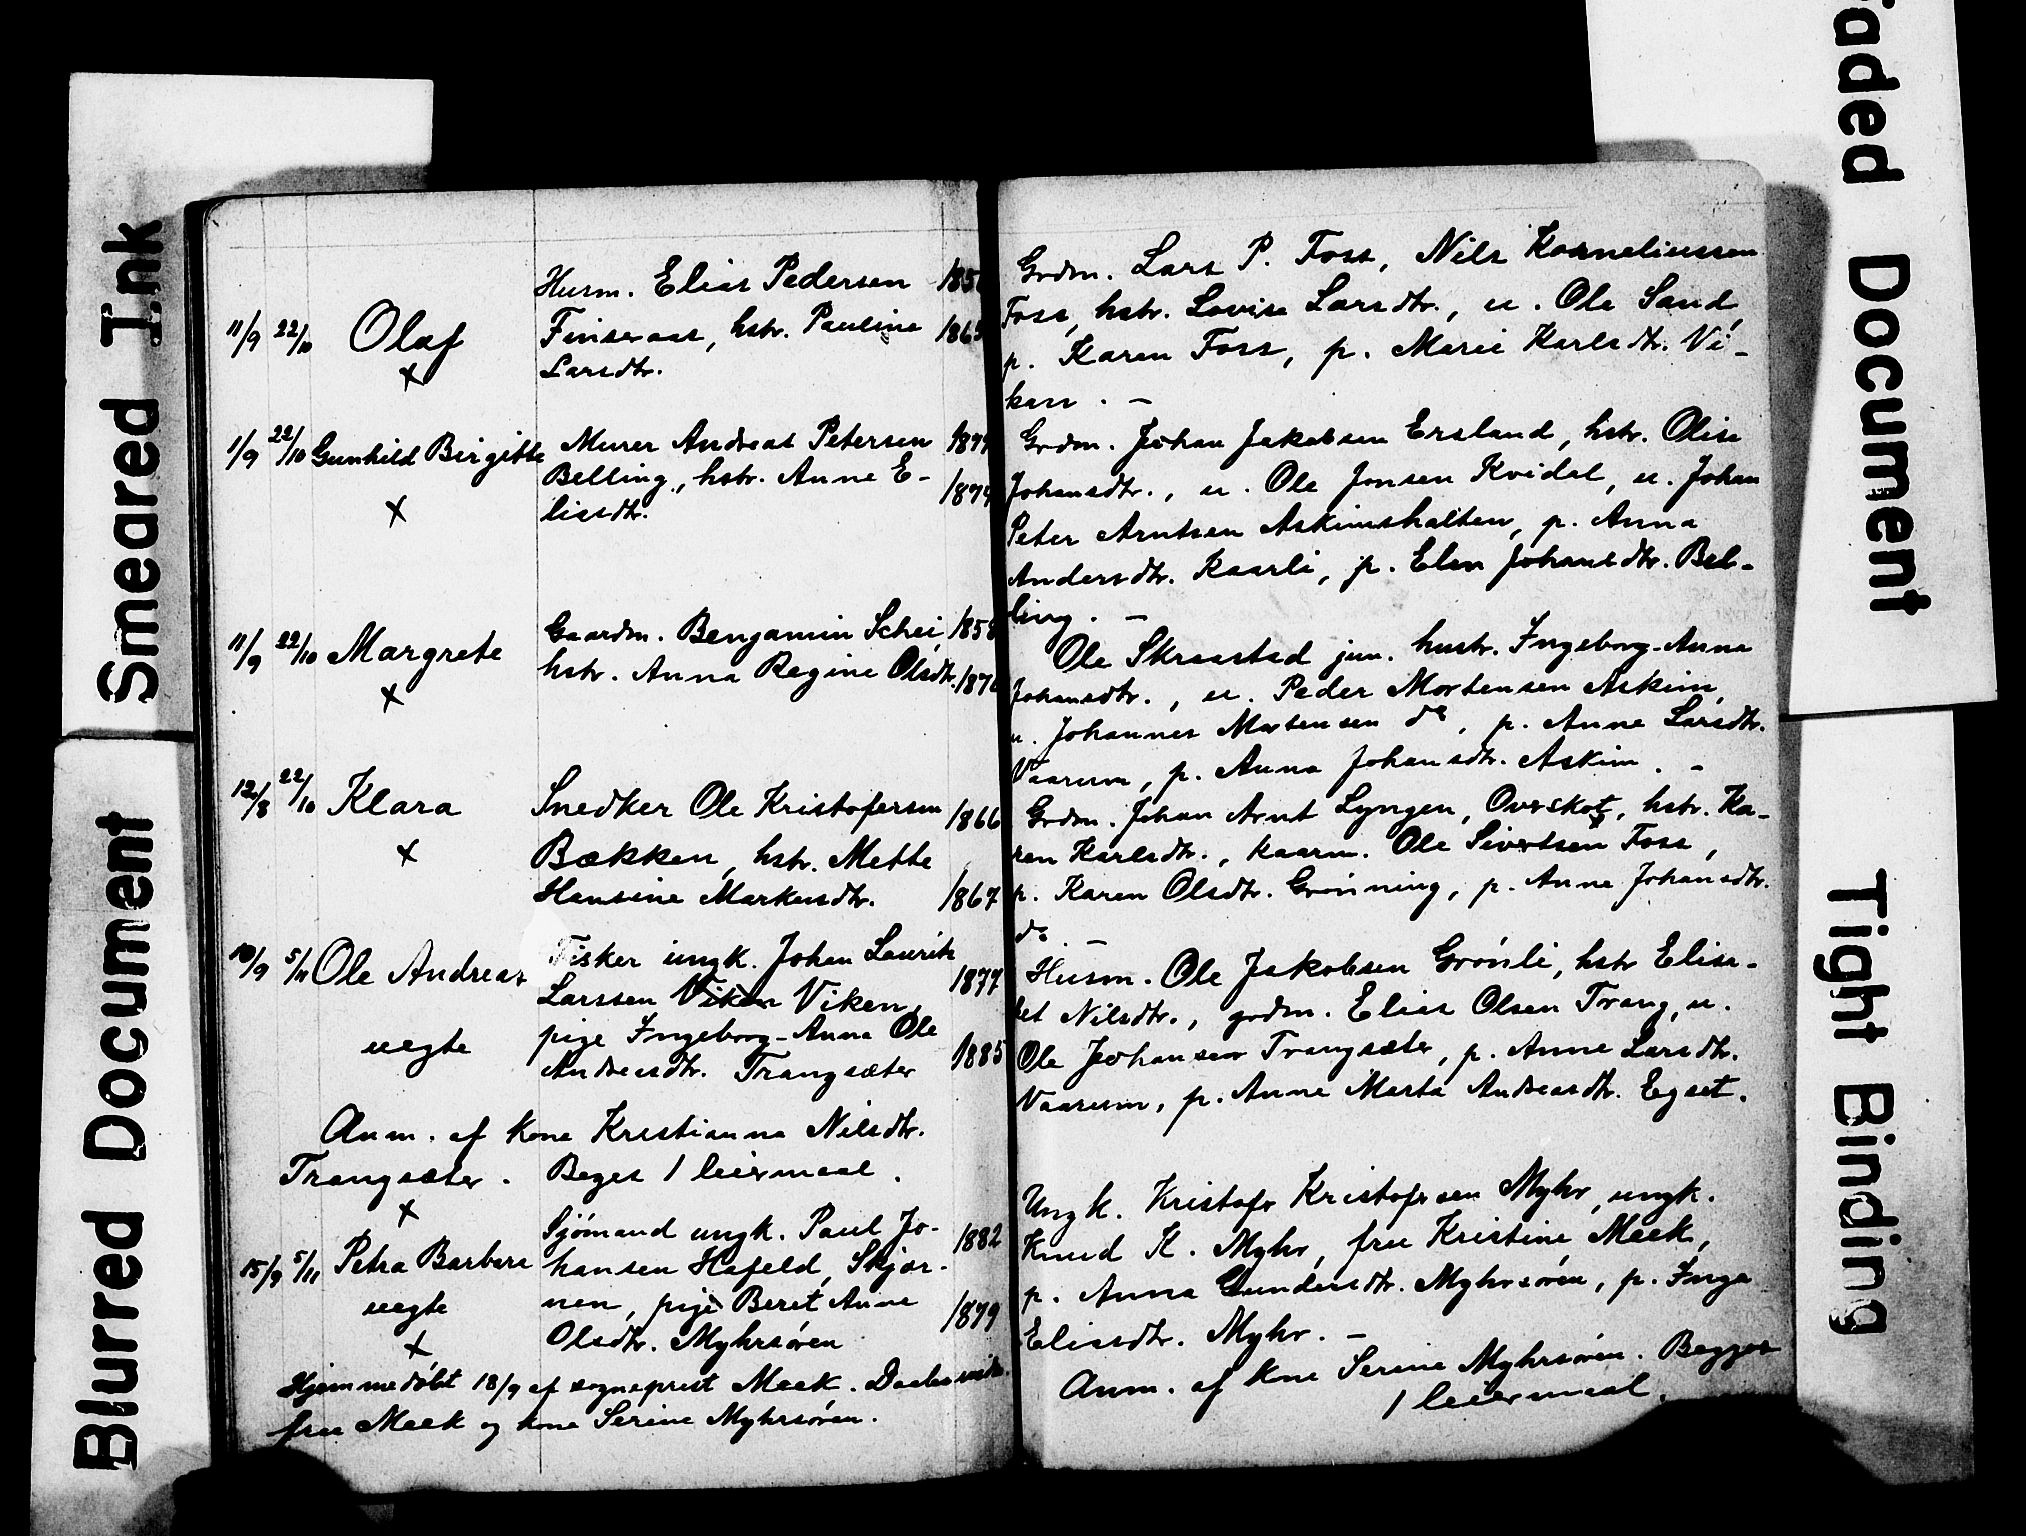 Smeared Ink
Blurred Document
Faded Document
Tight Binding
Husm. Elias Pedersen 185
11/9 22/10 Olaf Finseraas, hstr. Pauline 1865
x Larsdtr.
1/9 22/10 Gunhild Birgitte Murer Andreas Petersen 187
Belling, hstr. Anne E- 187
x lissdtr.
11/9 22/10 Margrete Gaardm. Benjamin Schei, 1858
hstr. Anna Regine Olsdtr. 187
x
12/8 22/10 Klara Snedker Ole Kristofersen 1866
x Bækken, hstr. Mette
Hansine Markusdtr. 1867
10/9 5/11 Ole Andreas Fisker ungk. Johan Laurits 1877
Larssen Viken Viken,
uegte pige Ingeborg-Anna Ole 1885
Andreasdtr. Trangsæter
Anm. af kone Kristianna Nilsdtr.
Trangsæter. Beges 1 leiermaal.
x
Sjømand ungk. Paul Jo- 1882
15/9 5/11 Petra Barbara hansen Hafeld, Skjør-
uegte nen, pige Beret Anne 1879
x Olsdtr. Myhrsøren
Hjemmedøbt 18/9 af sogneprest Meek. Daabsvidn.
fru Meek og kone Serine Myhrsøren.
Grdm. Lars P. Foss, Nils Korneliussen
Foss, hstr. Lovise Larsdtr., u. Ole Sand,
p. Karen Foss, p. Marie Karlsdtr. Vi-
kan. —
Grdm. Johan Jakobsen Ersland, hstr. Olise
Johansdtr., u. Ole Jonsen Kvidal, u. Johan
Peter Arntsen Askimshalten, p. Anna
Andersdtr. Kaarli, p. Elen Johansdtr. Bel-
ling. —
Ole Skraastad jun. hustr. Ingeborg-Anna
Johansdtr., u. Peder Mortensen Askim,
u. Johannes Mortensen do, p. Anne Larsdtr.
Vaarum, p. Anna Johansdtr. Askim. -
Grdm. Johan Arnt Lyngen, Overskot, hstr. Ka-
ren Karlsdtr., kaarm. Ole Sivertsen Foss,
p. Karen Olsdtr. Grønning, p. Anne Johansdtr.
do —
Husm. Ole Jakobsen Grønli, hstr Elisa-
bet Nilsdtr., grdm. Elias Olsen Trang, u.
Ole Johansen Trangsæter, p. Anne Larsdtr.
Vaarum, p. Anne Marta Andreasdtr. Egset.
Ungk. Kristofer Kristofersen Myhr, ungk.
Knud K. Myhr, fru Kristine Meek,
p. Anna Gundersdtr. Myhrsøren, p. Inga
Elisdtr. Myhr. —
Anm. af kone Serine Myhrsøren. Begges
1 leiermaal.